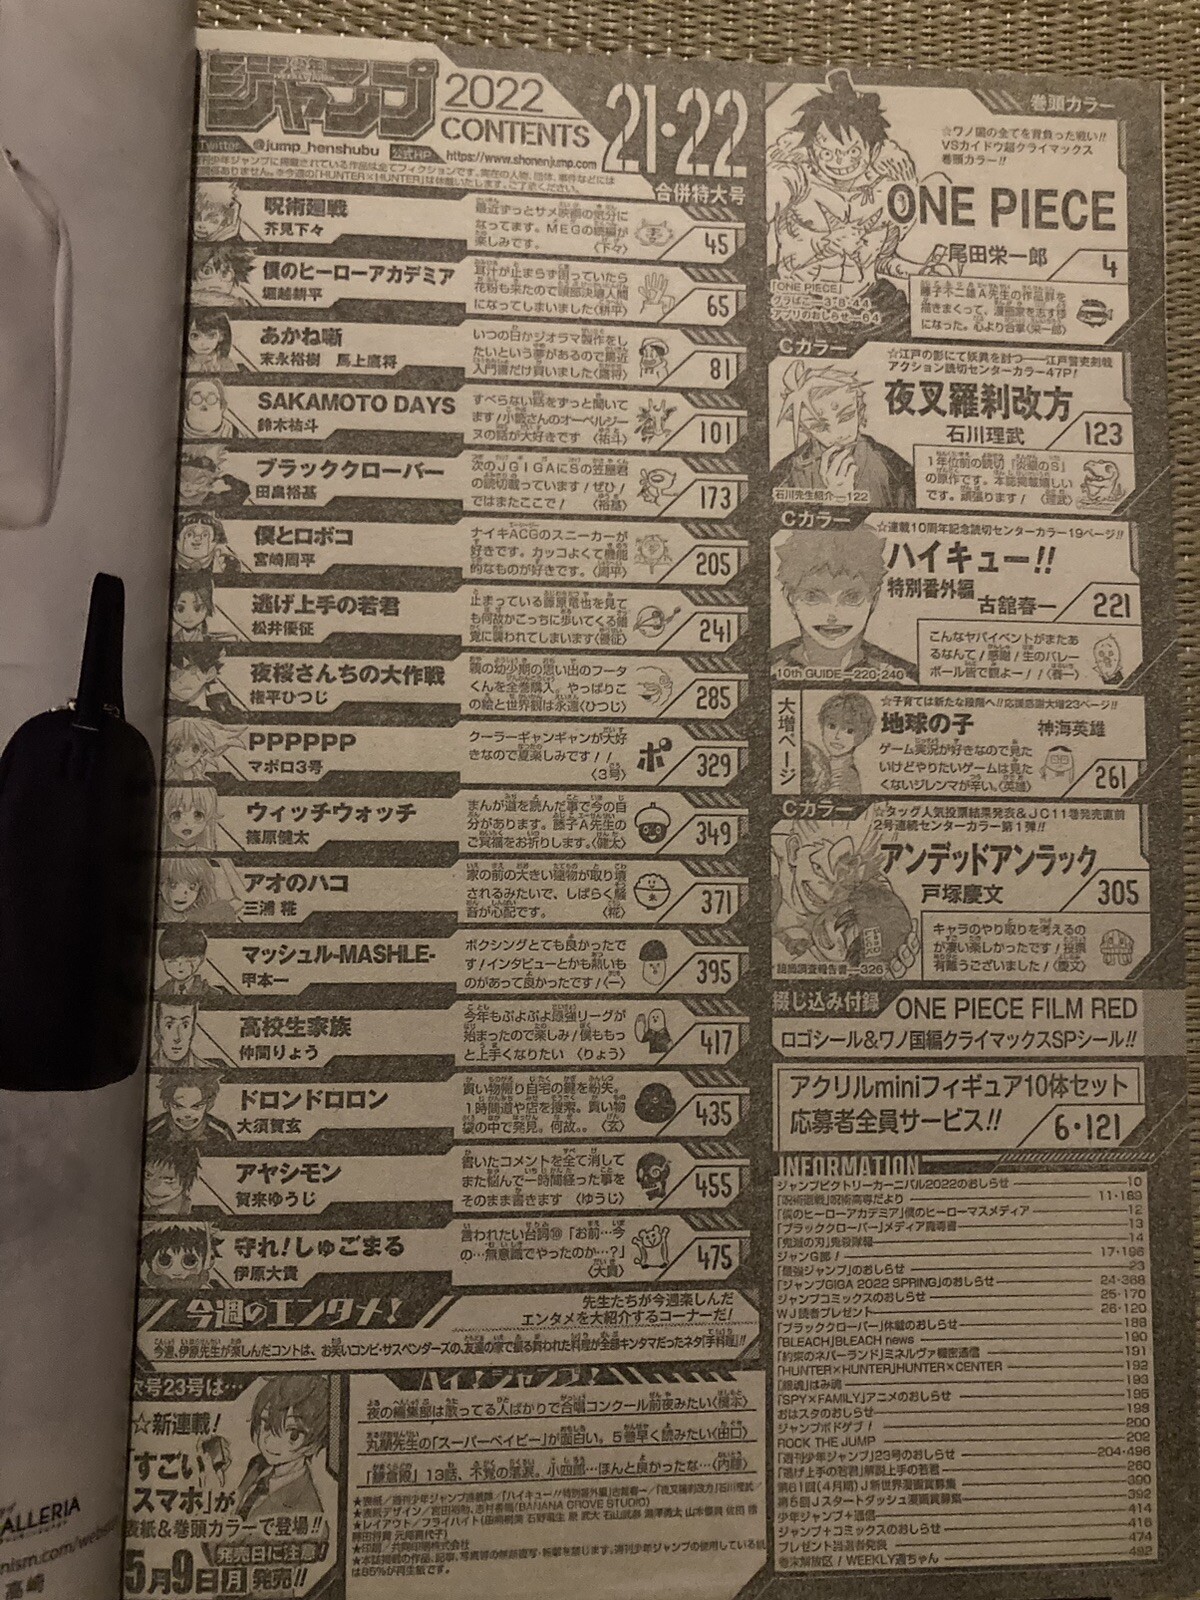 少年ジャンプ
2022
CONTENTS
21・22
合併特大号
Twitter @jump_henshubu 公式HP https://www.shonenjump.com
呪術廻戦
芥見下々
最近ずっとサメ映画の気分に
なってます。MEGの続編が
楽しみです。〈下々〉
45
僕のヒーローアカデミア
堀越耕平
耳汁が止まらず困っていたら
花粉も来たので頭部決壊人間
になってしまいました〈耕平〉
65
あかね噺
末永裕樹 馬上鷹将
いつの日かジオラマ製作をし
たいという夢があるので最近
入門書だけ買いました〈鷹将〉
81
SAKAMOTO DAYS
鈴木祐斗
すべらない話をずっと聞いて
ます!小籔さんのオーベルジー
ヌの話が大好きです〈祐斗〉
101
ブラッククローバー
田畠裕基
次のJGIGAにSの笠屋君
の読切載っています!ぜひ!
ではまたここで!〈裕基〉
173
僕とロボコ
宮崎周平
ナイキACGのスニーカーが
好きです。カッコよくて機能
的なものが好きです。〈周平〉
205
逃げ上手の若君
松井優征
止まっている藤原竜也を見て
も何故かこっちに歩いてくる錯
覚に襲われてしまいます〈優征〉
241
夜桜さんちの大作戦
権平ひつじ
親の幼少期の思い出のフータ
くんを全巻購入。やっぱりこ
の絵と世界観は永遠〈ひつじ〉
285
PPPPPP
マポロ3号
クーラーギャンギャンが大好
きなので夏楽しみです!!
〈3号〉
ポ
329
ウィッチウォッチ
篠原健太
まんが道を読んだ事で今の自
分があります。藤子A先生の
ご冥福をお祈りします。〈健太〉
349
アオのハコ
三浦 糀
家の前の大きい建物が取り壊
されるみたいで、しばらく騒
音が心配です。〈糀〉
371
マッシュル-MASHLE-
甲本一
ボクシングとても良かったで
す!インタビューとかも熱いも
のがあって良かったです!〈一〉
395
高校生家族
仲間りょう
今年もぷよぷよ最強リーグが
始まったので楽しみ!僕ももっ
と上手くなりたい〈りょう〉
417
ドロンドロロン
大須賀玄
買い物帰り自宅の鍵を紛失。
1時間道や店を捜索。買い物
袋の中で発見。何故。。〈玄〉
435
アヤシモン
賀来ゆうじ
書いたコメントを全て消して
また悩んで一時間経った事を
そのまま書きます〈ゆうじ〉
455
守れ!しゅごまる
伊原大貴
言われたい台詞⑩「お前…今
の…無意識でやったのか…?」
〈大貴〉
475
今週のエンタメ!
先生たちが今週楽しんだ
エンタメを大紹介するコーナーだ!
今週、伊原先生が楽しんだコントは、お笑いコンビ・サスペンダーズの、友達の家で振る舞われた料理が全部キンタマだったネタ「手料理」!!
次号23号は…
☆新連載!
「すごい
スマホ」が
表紙&巻頭カラーで登場!!
発売日に注意!
5月9日月発売!!
ハイ!ジャンプ!
夜の編集部は歌ってる人ばかりで合唱コンクール前夜みたい〈橋本〉
丸顔先生の「スーパーベイビー」が面白い。5巻早く読みたい〈田口〉
「鎌倉殿」13話、不覚の落涙。小四郎…ほんと良かったな…〈内藤〉
巻頭カラー
☆ワノ国の全てを背負った戦い!!
VSカイドウ超クライマックス
巻頭カラー!!
ONE PIECE
尾田栄一郎
4
「ONE PIECE」
アプリのおしらせ—64
藤子不二雄A先生の作品群を
描きまくって、漫画家を志す様
になった。心より合掌〈栄一郎〉
Cカラー
☆江戸の影にて妖異を討つ——江戸警吏剣戟
アクション読切センターカラー47P!
夜叉羅刹改方
石川理武
123
石川先生紹介—122
1年位前の読切「炎眼のS」
の原作です。本誌掲載嬉しい
です。頑張ります!〈理武〉
Cカラー
☆連載10周年記念読切センターカラー19ページ!!
ハイキュー!!
特別番外編
古舘春一
221
10th GUIDE—220・240
こんなヤバイイベントがまたあ
るなんて!感謝!生のバレー
ボール皆で観よー!!〈春一〉
大増ページ
☆子育ては新たな段階へ!!応援感謝大増23ページ!!
地球の子
神海英雄
ゲーム実況が好きなので見た
いけどやりたいゲームは見た
くないジレンマが辛い。〈英雄〉
261
Cカラー
☆タッグ人気投票結果発表&JC11巻発売直前
2号連続センターカラー第1弾!!
アンデッドアンラック
戸塚慶文
305
キャラのやり取りを考えるの
が凄い楽しかったです!投票
有難うございました!〈慶文〉
綴じ込み付録 ONE PIECE FILM RED
ロゴシール&ワノ国編クライマックスSPシール!!
アクリルminiフィギュア10体セット
応募者全員サービス!! 6・121
INFORMATION
ジャンプビクトリーカーニバル2022のおしらせ—10
「呪術廻戦」呪術高専だより—11・189
「僕のヒーローアカデミア」僕のヒーローマスメディア—12
「ブラッククローバー」メディア魔導書—13
「鬼滅の刃」鬼殺隊報—14
ジャンG部!—17・196
「最強ジャンプ」のおしらせ—23
「ジャンプGIGA 2022 SPRING」のおしらせ—24・368
ジャンプコミックスのおしらせ—25・170
WJ読者プレゼント—26・120
「ブラッククローバー」休載のおしらせ—188
「BLEACH」BLEACH news—190
「約束のネバーランド」ミネルヴァ機密通信—191
「HUNTER×HUNTER」HUNTER×CENTER—192
「銀魂」はみ魂—193
「SPY×FAMILY」アニメのおしらせ—195
おはスタのおしらせ—199
ジャンプボドゲブ!—200
ROCK THE JUMP—202
「週刊少年ジャンプ」23号のおしらせ—204・496
「逃げ上手の若君」解説上手の若君—260
第61回(4月期)J新世界漫画賞募集—390
第5回Jスタートダッシュ漫画賞募集—392
少年ジャンプ+通信—414
ジャンプ+コミックスのおしらせ—416
プレゼント当選者発表—474
巻末解放区!WEEKLY週ちゃん—492
ALLERIA
高崎